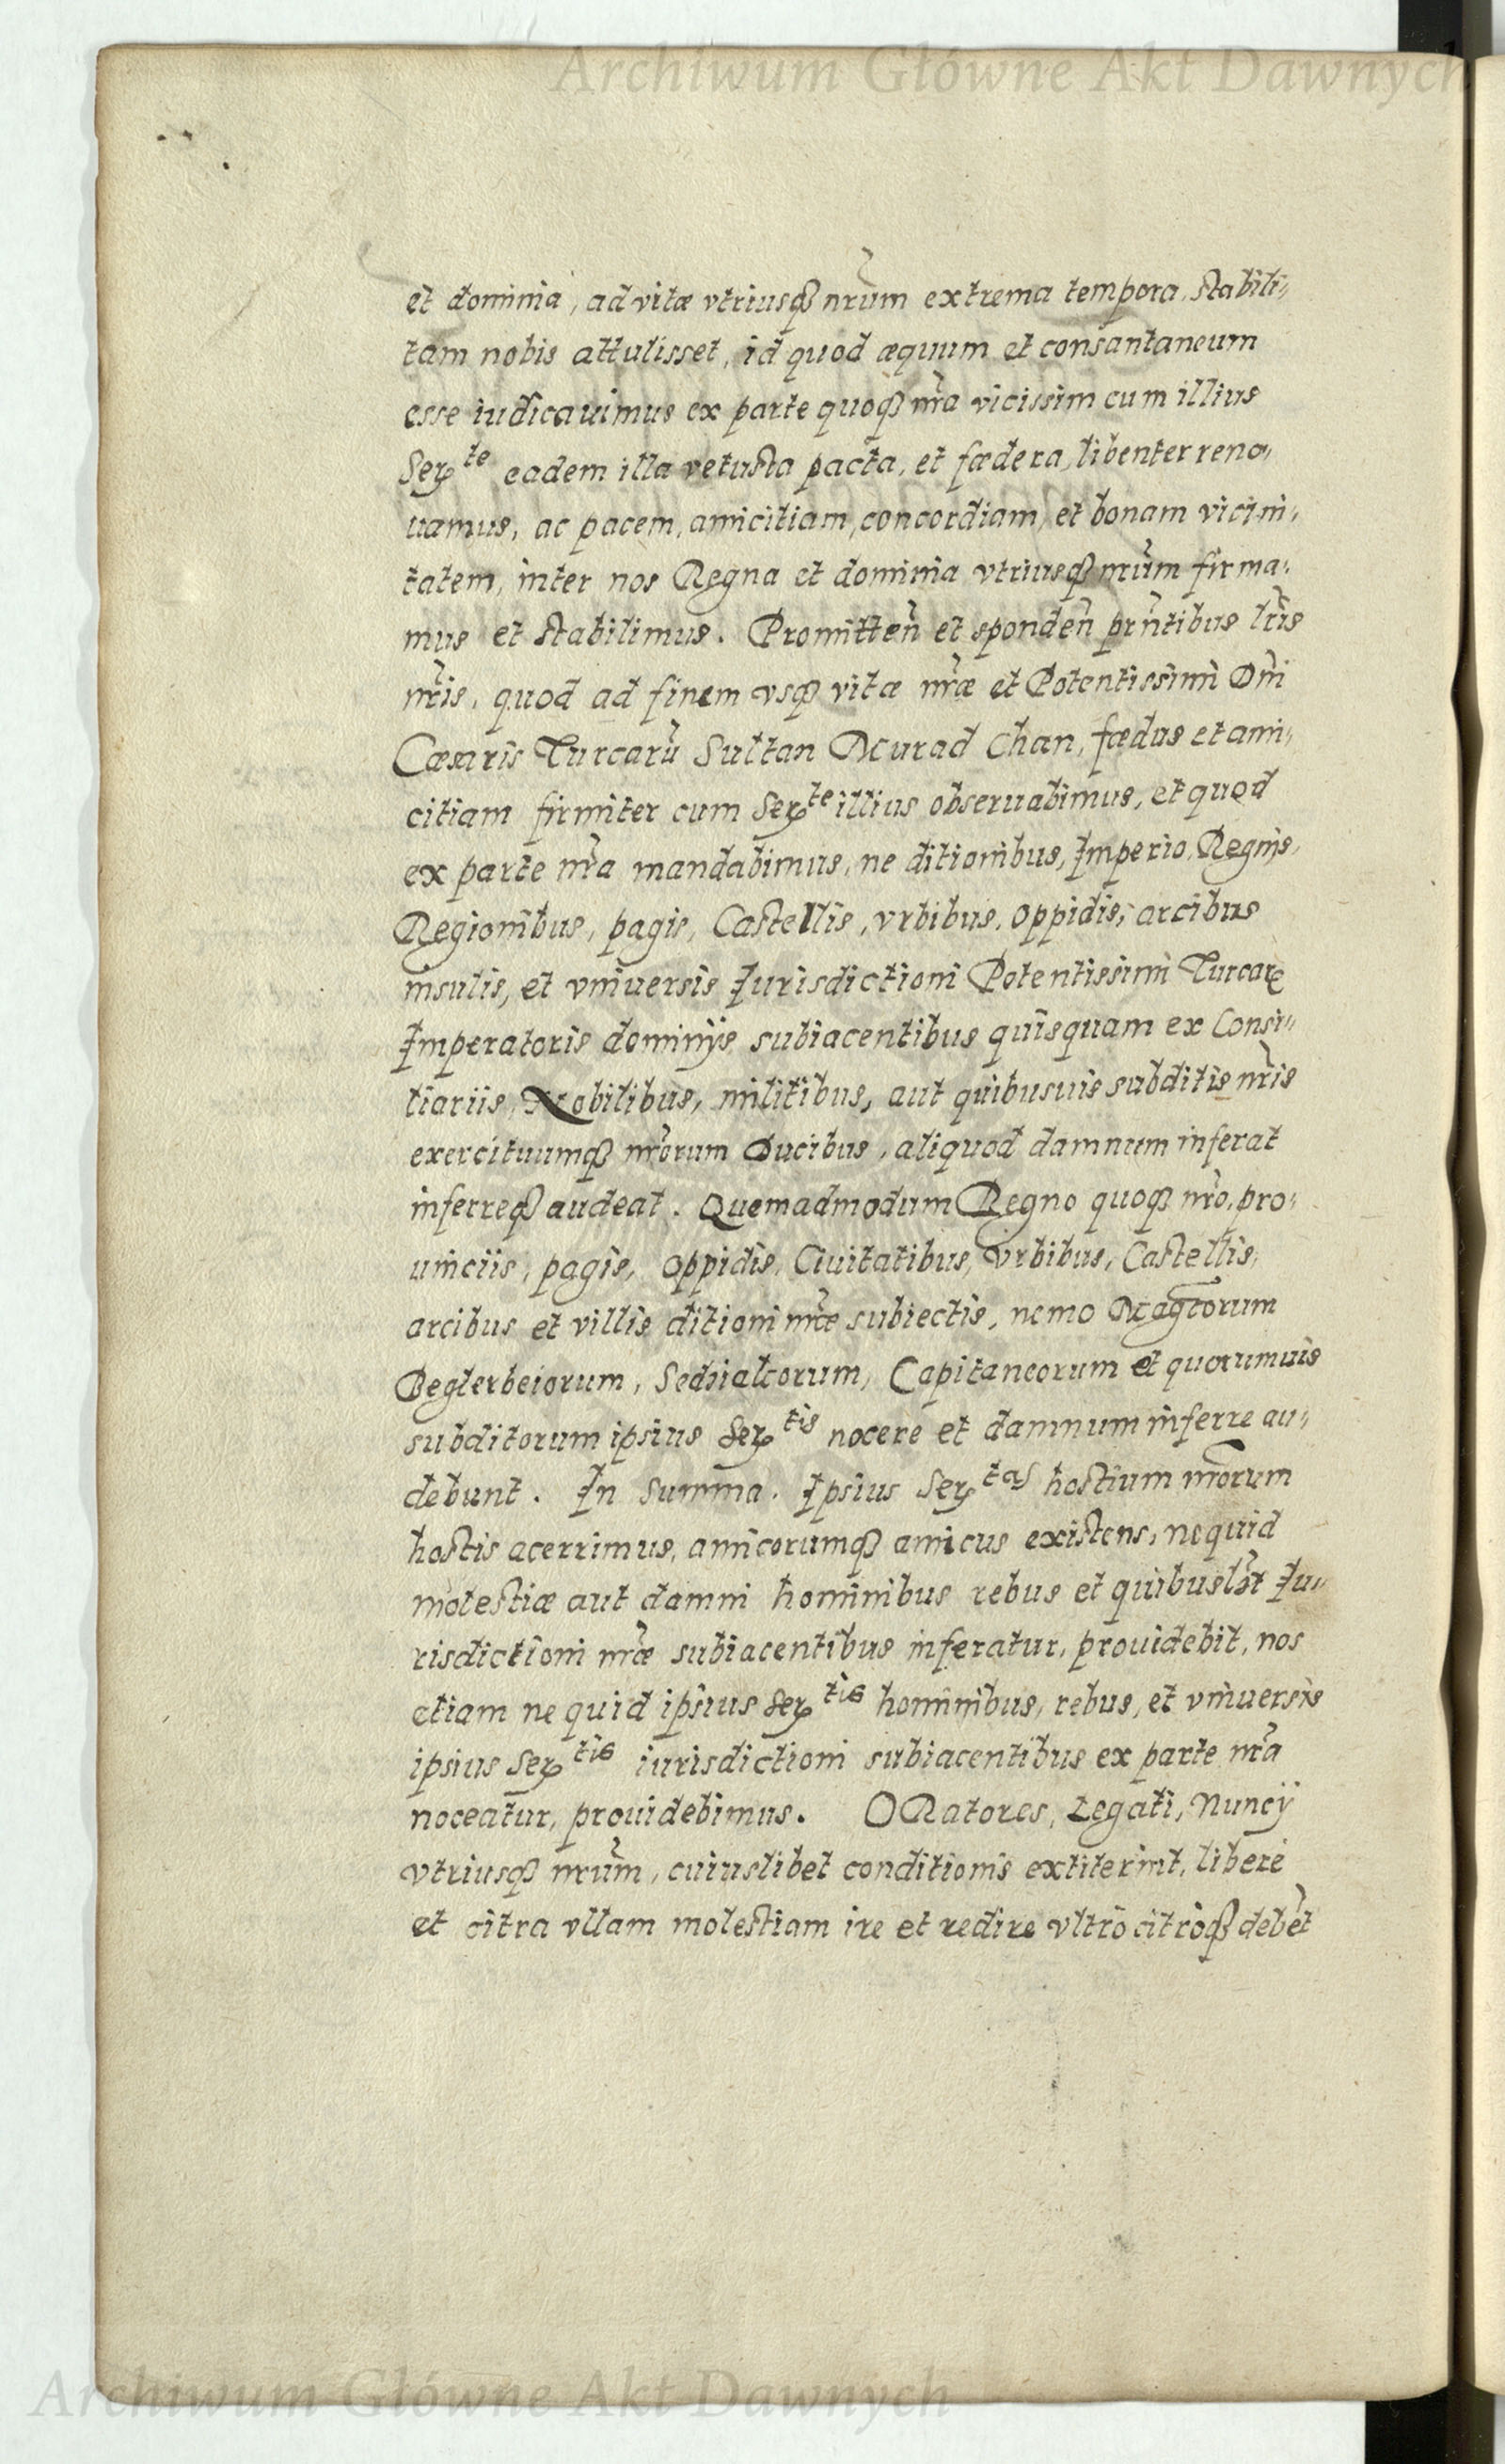 Archiwum Główne Akt Dawnych
et dominia, ad vitæ vtriusq nr̃um extrema tempora, stabili„
tam nobis attulisset, id quod æquum et consantaneum
esse iudicauimus ex parte quoq nr̃a vicissim cum illius
Serte eadem illa vetusta pacta, et fædera, libenter reno„
uamus, ac pacem, amicitiam, concordiam, et bonam vicini„
tatem, inter nos Regna et dominia vtriusq nr̃um firma„
mus et stabilimus. Promitten̄ et sponden̄ pr̃ntibus lr̃is
nr̃is, quod ad finem vsq vitæ nr̃æ et Potentissimi Dn̄i
Cæsaris Turcarū Sultan Murad Chan, fædus et ami„
citiam firmiter cum Serte illius obseruabimus, et quod
ex parte nr̃a mandabimus, ne ditionibus, Imperio, Regnis,
Regionibus, pagis, Castellis, vrbibus, oppidis, arcibus
insulis, et vniuersis Jurisdictioni Potentissimi Turcarꝝ
Imperatoris dominijs subiacentibus quisquam ex Consi„
liariis, Nobilibus, militibus, aut quibusuis subditis nr̃is
exercituumq nr̃orum Ducibus, aliquod damnum inferat
inferreq audeat. Quemadmodum Regno quoq nr̃o, pro„
uinciis, pagis, oppidis, Ciuitatibus, vrbibus, Castellis,
arcibus et villis ditioni nr̃æ subiectis, nemo Mag̃torum
Beglerbeiorum, Sedsialcorum, Capitaneorum et quorumuis
subditorum ipsius Sertis nocere et damnum inferre au„
debunt. In summa. Ipsius Sertas hostium nr̃orum
hostis acerrimus, amicorumq amicus existens, nequid
molestiæ aut damni hominibus rebus et quibusl̃st Ju„
risdictioni nr̃æ subiacentibus inferatur, prouidebit, nos
etiam ne quid ipsius Sertis hominibus, rebus, et vniuersis
ipsius Sertis iurisdictioni subiacentibus ex parte nr̃a
noceatur, prouidebimus. ORatores, Legati, Nuncÿ
vtriusq nr̃um, cuiuslibet conditionis extiterint, liberè
et citra vllam molestiam ire et redire vltrò citròq deb̃et
Archiwum Główne Akt Dawnych